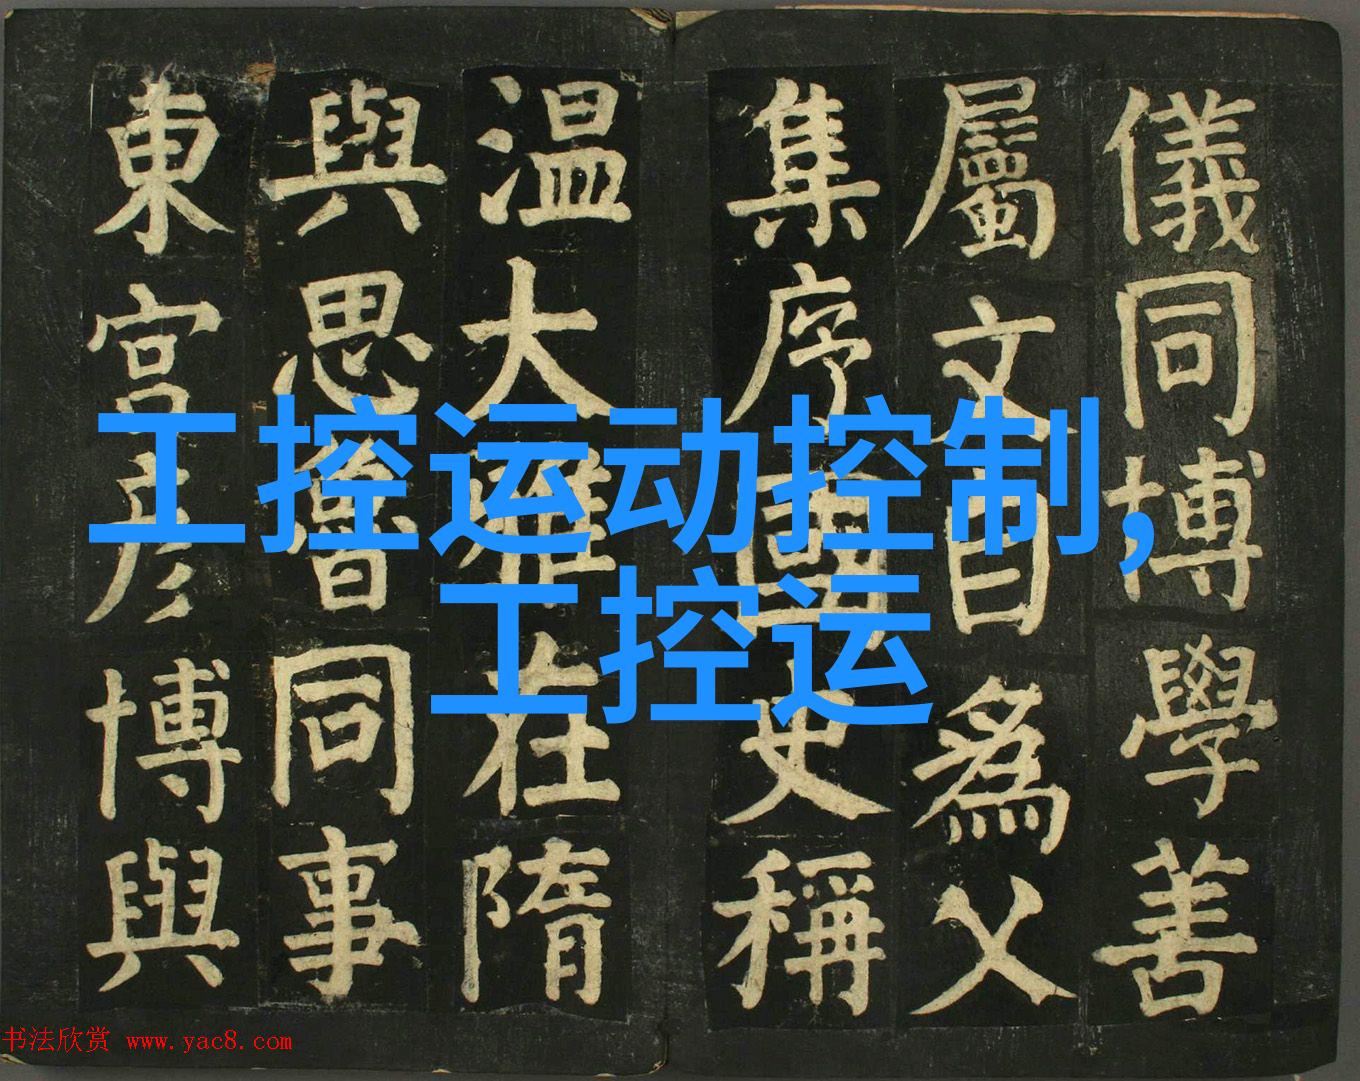 儀同博學善
屬文自爲父
集序國史稱
温大雅在隋
與思魯同事
東宮彥博與
工控运动控制,
工控运
书法欣赏 www.yac8.com